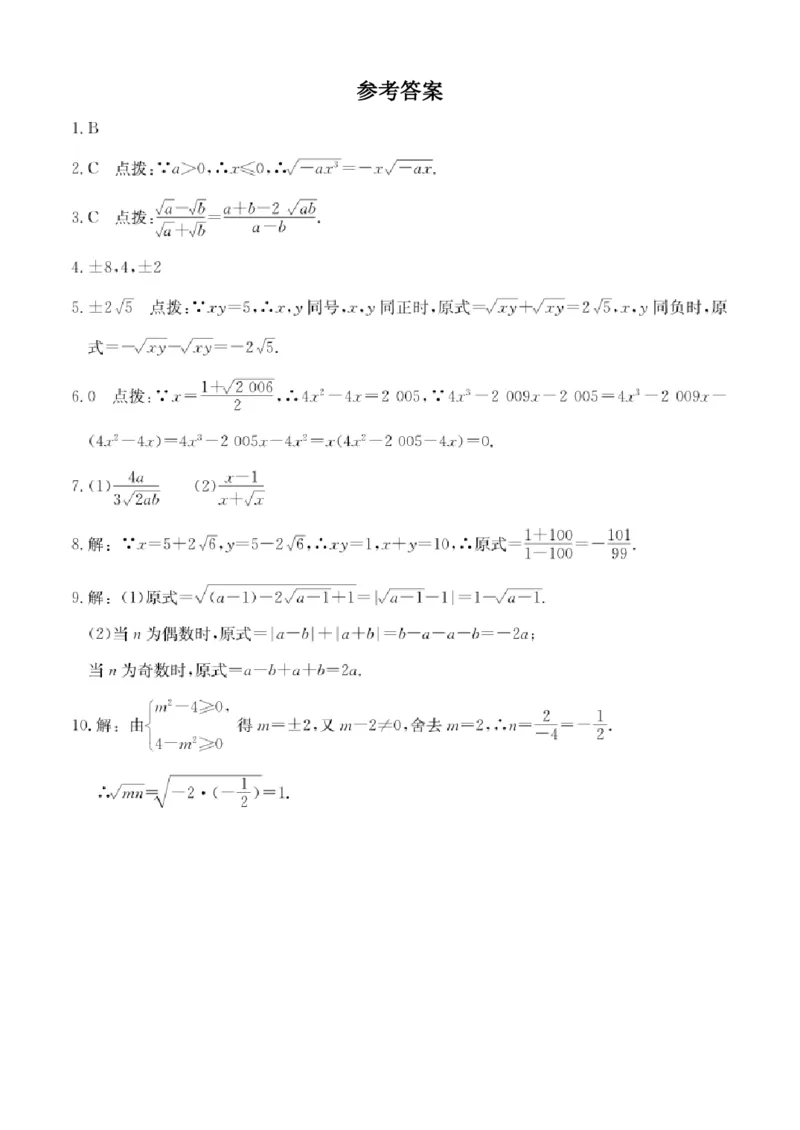 参考答案
1. B
2. C 点拨:∵a>0,∴x≤0,∴√(-ax³)=-x√(-ax).
3. C 点拨:(√a-√b)/(√a+√b)=(a+b-2√(ab))/(a-b).
4. ±8,4,±2
5. ±2√5 点拨:∵xy=5,∴x,y同号,x,y同正时,原式=√(xy)+√(xy)=2√5,x,y同负时,原
式=-√(xy)-√(xy)=-2√5.
6. 0 点拨:∵x=(1+√(2 006))/2,∴4x²-4x=2 005,∵4x³-2 009x-2 005=4x³-2 009x-
(4x²-4x)=4x³-2 005x-4x²=x(4x²-2 005-4x)=0.
7. (1)4a/(3√(2ab)) (2)(x-1)/(x+√x)
8. 解:∵x=5+2√6,y=5-2√6,∴xy=1,x+y=10,∴原式=(1+100)/(1-100)=-101/99.
9. 解:(1)原式=√((a-1)-2√(a-1)+1)=|√(a-1)-1|=1-√(a-1).
(2)当n为偶数时,原式=|a-b|+|a+b|=b-a-a-b=-2a;
当n为奇数时,原式=a-b+a+b=2a.
10. 解:由{m²-4≥0, 4-m²≥0 得m=±2,又m-2≠0,舍去m=2,∴n=2/(-4)=-1/2.
∴√(mn)=√(-2·(-1/2))=1.